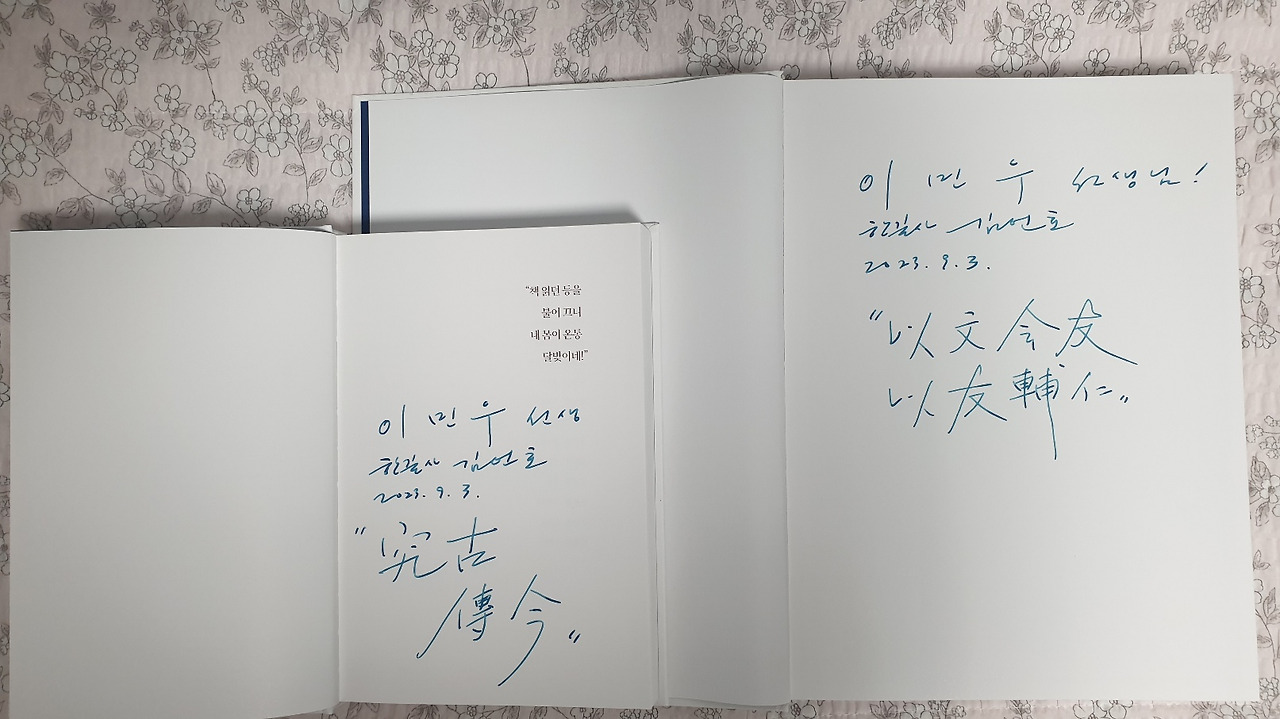 “책 읽던 등을
불어 끄니
네 몸이 온통
달빛이네!”
이 민 우 선생
한길사 김언호
2023. 9. 3.
“究古
傳今”
이 민 우 선생님!
한길사 김언호
2023. 9. 3.
“以文会友
以友輔仁”